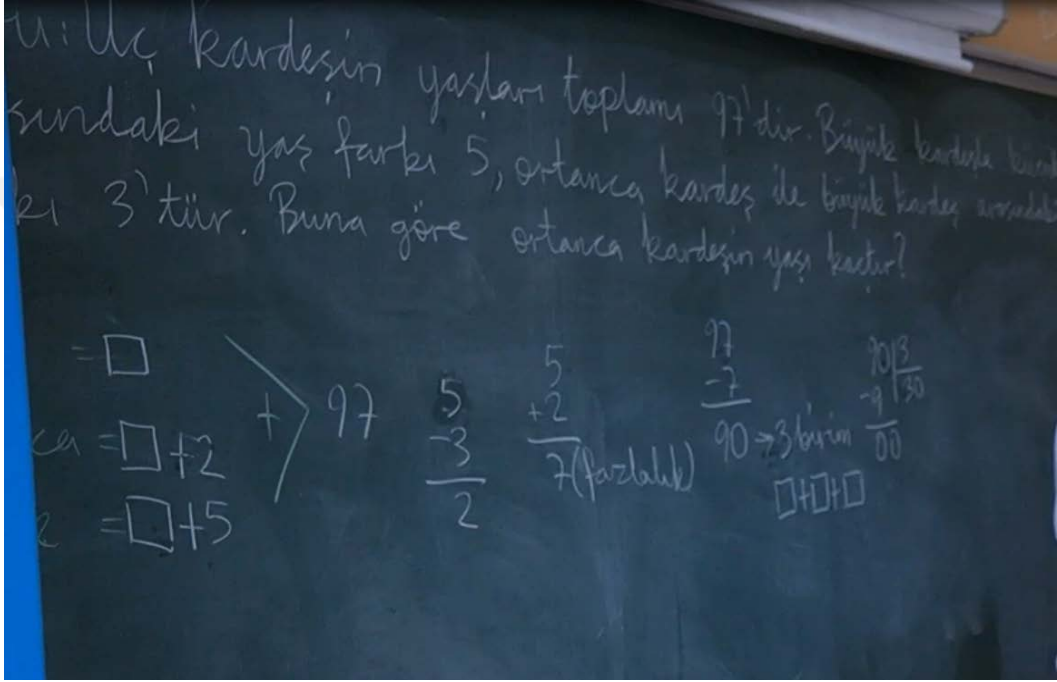 u: Üç kardeşin yaşları toplamı 97'dir. Büyük kardeşle
sındaki yaş farkı 5, ortanca kardeş ile büyük kardeş arasındaki
kı 3'tür. Buna göre ortanca kardeşin yaşı kaçtır?
= □
ca = □+2
= □+5
+ 97
5
-3
2
5
+2
7 (fazlalık)
97
-7
90 → 3 birim
□+□+□
90 3
-9 30
00